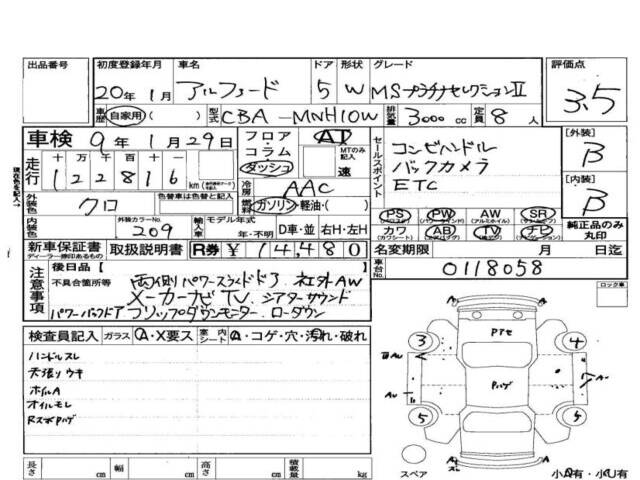 出品番号 初度登録年月 車名 ドア 形状 グレード 評価点
20年 1月 アルファード 5 W MSプラチナセレクションⅡ 3.5
車歴 自家用 ( ) 型式 CBA-MNH10W 排気量 3000 cc 定員 8 人
車検 9年 1月29日 フロア・コラム・ダッシュ AT MTのみ記入 速
走行 十 万 千 百 十 一
122816 km
セールスポイント コンビハンドル
バックカメラ
ETC
[外装] B
[内装] B
外装色 クロ 色替車は色替と記入 冷房 AAC
燃料 ガソリン・軽油・( )
内装色 外装カラーNo. 209 輸入車 モデル年式 年・不明 D車・並 右H・左H
PS PW AW SR
(パワーウインドウ) (アルミホイル)
カワ AB TV ナビ
(カワシート)
純正品のみ丸印
新車保証書 取扱説明書 R券 ¥ 14,480
名変期限 月 日迄
車台No. 0118058
注意事項 後日品 [ ]
不具合箇所等 両側パワースライドドア 社外AW
メーカーナビTV. シアターサウンド
パワーバックドア フリップダウンモニター ローダウン
ロック車
検査員記入 ガラス A・X要ス 室内シート A・コゲ・穴・汚れ・破れ
ハンドルスレ
天張りウキ
ホイルA
オイルモレ
3 4
5 5
スペア
小A有・小U有
長さ cm 幅 cm 高さ cm 積載量 kg